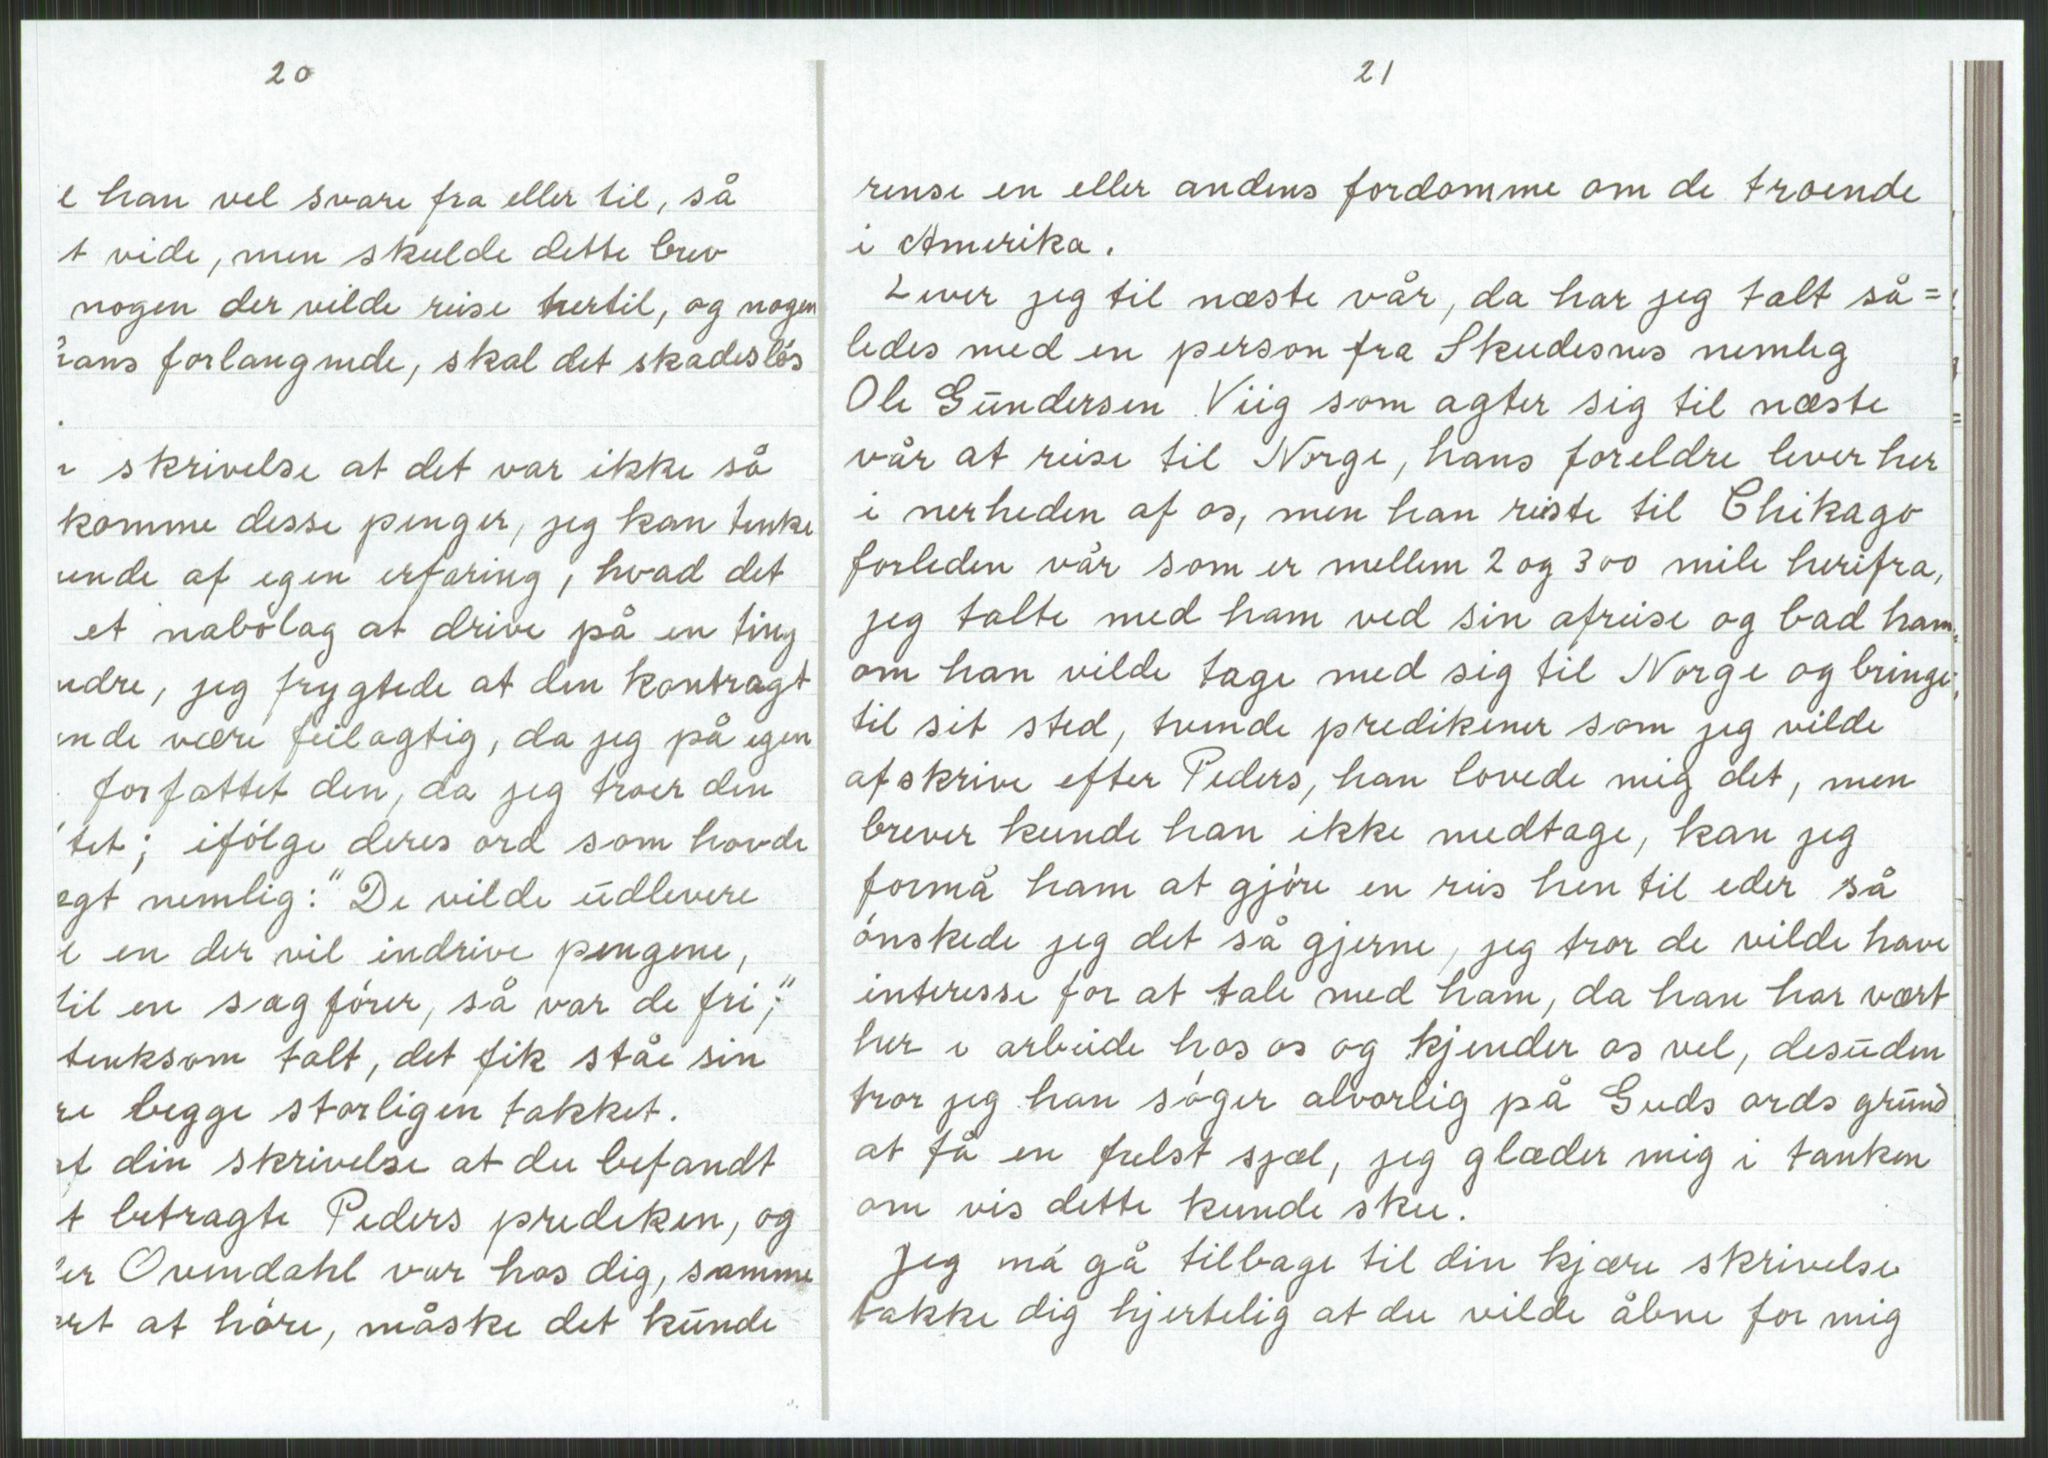 20
e han vel svare fra eller til, så
t vide, men skulde dette brev
nogen der vilde reise hertil, og nogen
hans forlangende, skal det skadesløs
.
skrivelse at det var ikke så
komme desse penger, jeg kan tenke
ende af egen erfaring, hvad det
et nabolag at drive på en ting
ndre, jeg frygtede at den kontragt
nde være feilagtig, da jeg på egen
forfattet den, da jeg troer den
tet; ifølge deres ord som hovde
ægt nemlig: "De vilde udlevere
e en der vil indrive pengene,
til en sagförer, så var de fri;"
tenksom talt, det fik ståe sin
re begge storligen takket.
af din skrivelse at du befandt
t betragte Peders prediken, og
er Ovendahl var hos dig, samme
ert at höre, måske det kunde
21
rense en eller andens fordomme om de troende
i Amerika.
Lever jeg til næste vår, da har jeg talt så=
ledes med en person fra Skudesnes nemlig
Ole Gundersen Viig som agter sig til næste
vår at reise til Norge, hans foreldre lever her
i nerheden af os, men han reiste til Chikago
forleden vår som er mellem 2 og 300 mile herifra,
jeg talte med ham ved sin afreise og bad ham
om han vilde tage med sig til Norge og bringe
til sit sted, tvende predikener som jeg vilde
afskrive efter Peders, han lovede mig det, men
brever kunde han ikke medtage, kan jeg
formå ham at gjöre en reis hen til eder så
önskede jeg det så gjerne, jeg tror de vilde have
interesse for at tale med ham, da han har vært
her i arbeide hos os og kjender os vel, desuden
tror jeg han söger alvorlig på Guds ords grund
at få en frelst sjæl, jeg glæder mig i tanken
om vis dette kunde skee.
Jeg må gå tilbage til din kjære skrivelse
takke dig hjertelig at du vilde åbne for mig